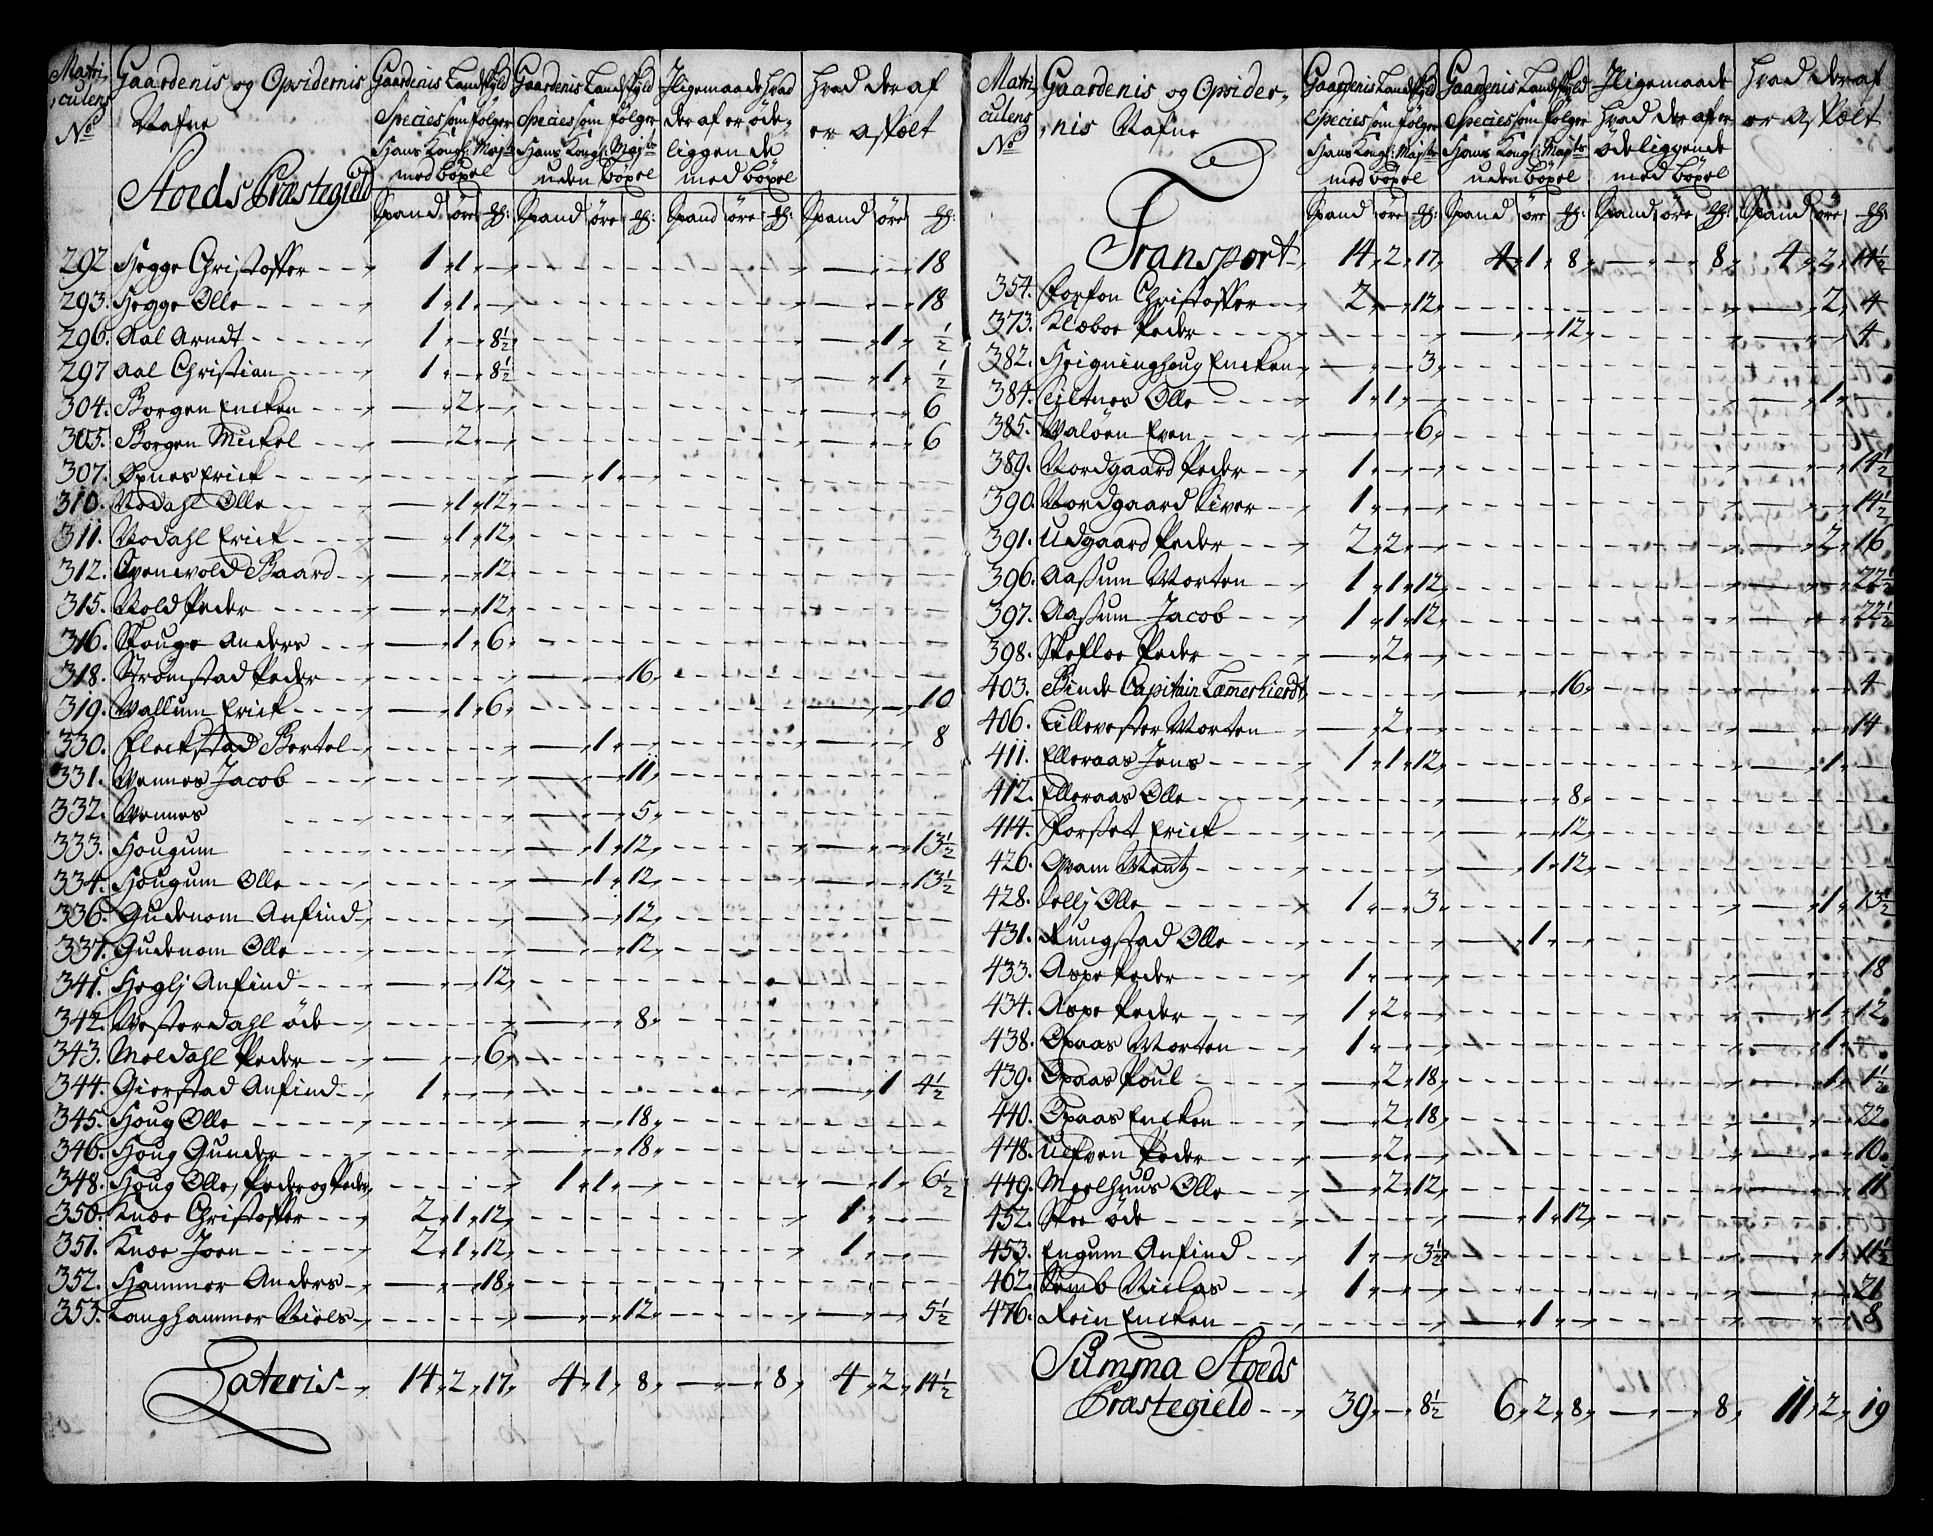 Matri-
culens
No
Gaardenis og Opsidernis
Nafne
Gaardenis Landskyld
Species som følger
Hans Kongl: Majts
med bøxel
Gaardenis Landskyld
Species som følger
Hans Kongl: Majts
uden bøxel
Iligemaade hvad
der af er øde-
liggende
med bøxel
hvad der af
er afkølt
Stoeds Præstegield
Spand øre
Spand øre
Spand øre
Spand øre
292 Hegge Christoffer 1 1 — 18
293. Hegge Olle 1 1 — 18
296. Aal Arndt 1 — 8½ — 1 ½
297 Aal Christian 1 — 8½ — 1 ½
304. Borgen Encken — 2 — 6
305. Borgen Mickel — 2 — 6
307. Øxnes Erick — 1 —
310. Nodahl Olle — 1 12
311. Nodahl Erick — 1 12
312. Baard — — 12
315. Vold Peder — — 12
316. Skouge Anders — 1 6
318. Strømstad Peder — — 16
319. Wallum Erick — 1 6 — — 10
330. Fleckstad Bertel — 1 — — — 8
331. Vennes Jacob — — 11
332. Vennes — — 5
333. Hougum — 1 12 — — 13½
334. Hougum Olle — 1 12 — — 13½
336. Gudenom Anfind — — 12
337. Gudenom Olle — — 12
341. Heglj Anfind — — 12
342. Vesterdahl øde — — 8
343. Moldahl Peder — — 6
344. Gierstad Anfind 1 — — — 1 4½
345. Houg Olle — — 18
346. Houg Gunder — — 18
348. Houg Olle, Peder og Peder 1 1 — — 1 6½
350. Knoe Christoffer 2 1 12 1 — —
351. Knoe Joen 2 1 12 1 — —
352. Hammer Anders — — 18
353. Langhammer Niels — — 12 — — 5½
Lateris 14 2 17 4 1 8 — — 8 4 2 14½
Matri-
culens
No
Gaardenis og Opsider-
nis Nafne
Gaardenis Landskyld
Species som følger
Hans Kongl: Majts
med bøxel
Gaardenis Landskyld
Species som følger
Hans Kongl: Majts
uden bøxel
Iligemaade
hvad der af er
øde liggende
med bøxel
hvad der af
er afkølt
Spand øre
Spand øre
Spand øre
Spand øre
Transport 14 2 17 4 1 8 — — 8 4 2 14½
354. Forfon Christoffer 2 — 12 — 2 4
373. Klæboe Peder — — 12 — — 4
382. Encken — — 3
384. Olle 1 1 — — 1 —
385. Valøen Even — — 6
389. Nordgaard Peder 1 — — — — 14½
390. Nordgaard Siver 1 — — — — 14½
391. Udgaard Peder 2 2 — — 2 16
396. Aassum Morten 1 1 12 — — 22½
397. Aassum Jacob 1 1 12 — — 22½
398. Skefloe Peder — 2 —
403. Binde Capitain — — 16 — — 4
406. Lillevester Morten — 2 — — — 14
411. Elleraas Jens 1 1 12 — 1 —
412. Elleraas Olle — — 8
414. Forsset Erick — — 12
426. Qvam — 1 12
428. Olle 1 — 3 — 1 13½
431. Rungstad Olle — 1 —
433. Aspe Peder 1 — — — — 18
434. Aspe Peder 1 2 — — 1 12
438. Opaas Morten 1 — — — 1 —
439. Opaas Poul — 2 18 — 1 1½
440. Opaas Encken — 2 18 — — 22
448. Peder — 2 — — — 10
449. Meelhuus Olle — 2 12 — — 11
452. Skee øde — 1 12
453. Engum Anfind 1 — 3½ — 1 11½
462. Semb Niclas 1 — — — — 21
476. Rein Encken — 1 — — — 8
Summa Stoeds
Præstegield 39 — 8½ 6 2 8 — — 8 11 2 19